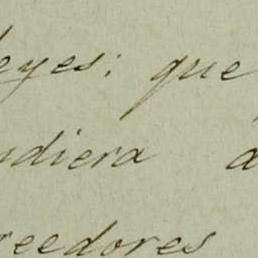 eyes: que
udiera á
reedores